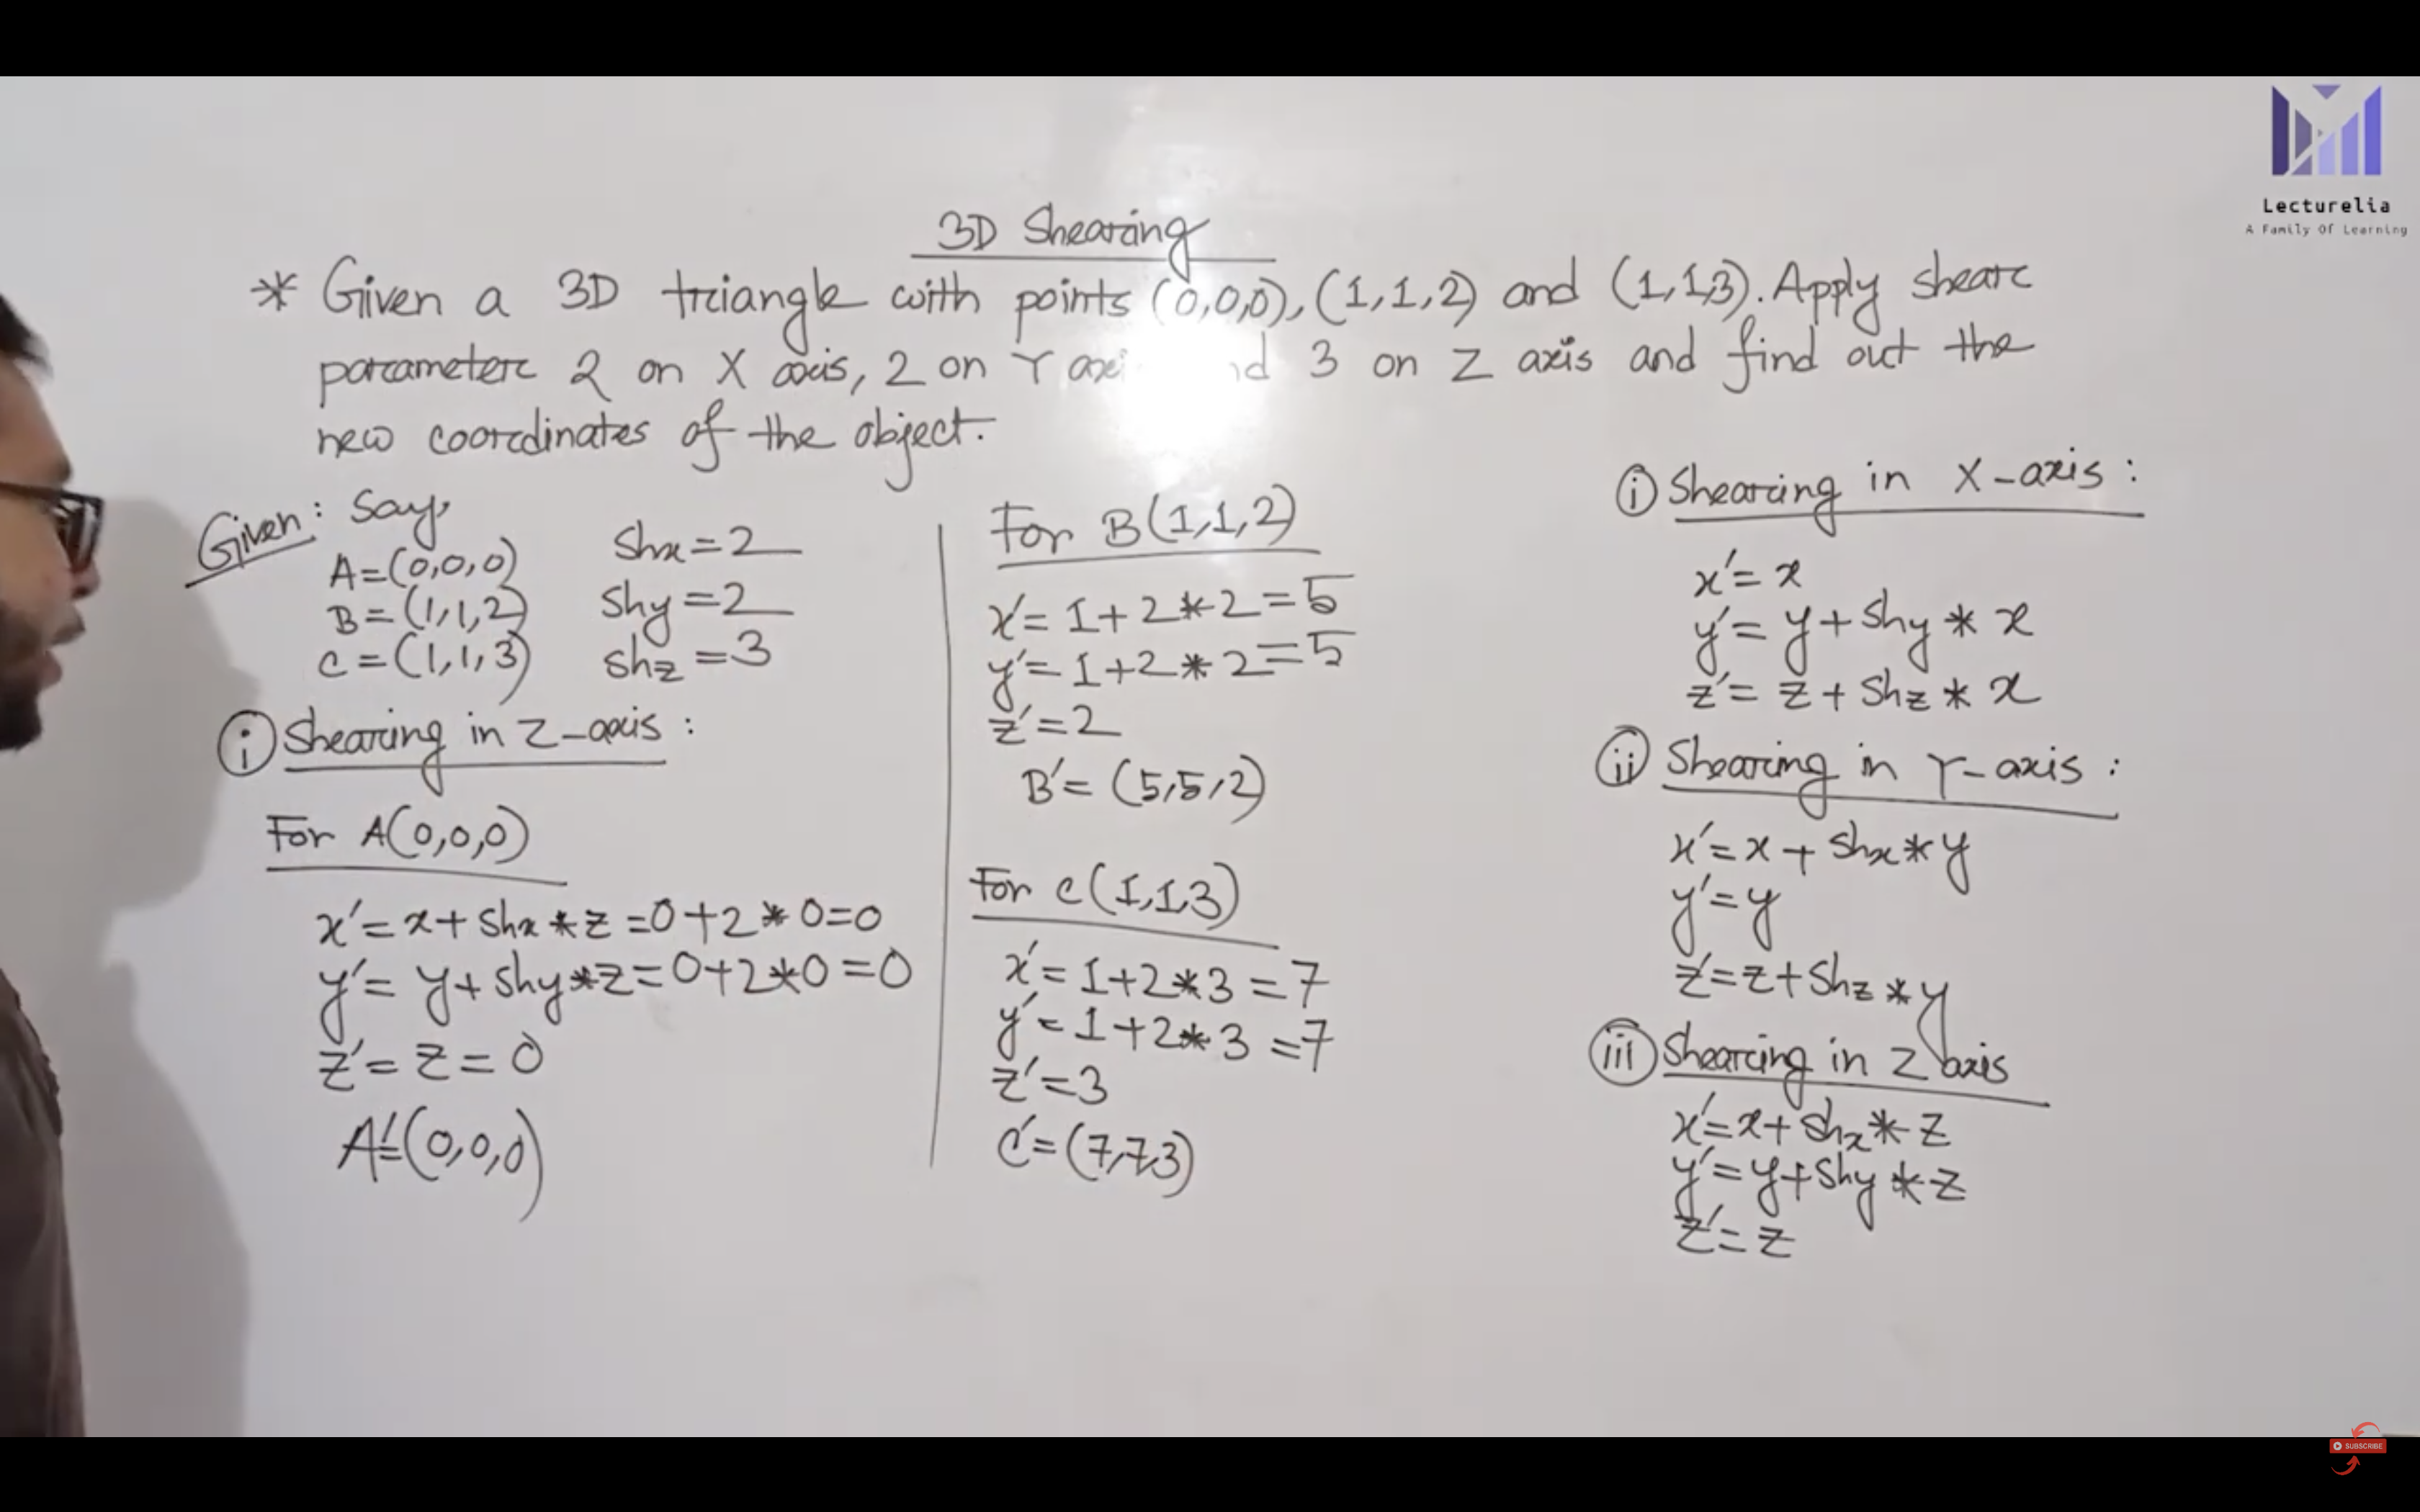 Lecturelia
A Family Of Learning
3D Shearing
* Given a 3D triangle with points (0,0,0), (1,1,2) and (1,1,3). Apply shear
parameter 2 on X axis, 2 on Y axi nd 3 on Z axis and find out the
new coordinates of the object.
Given: Say,
A=(0,0,0)
B=(1,1,2)
C=(1,1,3)
Shx=2
Shy=2
Shz=3
(i) Shearing in Z-axis:
For A(0,0,0)
x'=x+Shx*z=0+2*0=0
y'=y+Shy*z=0+2*0=0
z'=z=0
A'=(0,0,0)
For B(1,1,2)
x'=1+2*2=5
y'=1+2*2=5
z'=2
B'=(5,5,2)
For C(1,1,3)
x'=1+2*3=7
y'=1+2*3=7
z'=3
C'=(7,7,3)
(i) Shearing in X-axis:
x'=x
y'=y+Shy*x
z'=z+Shz*x
(ii) Shearing in Y-axis:
x'=x+Shx*y
y'=y
z'=z+Shz*y
(iii) Shearing in Z axis
x'=x+Shx*z
y'=y+Shy*z
z'=z
SUBSCRIBE